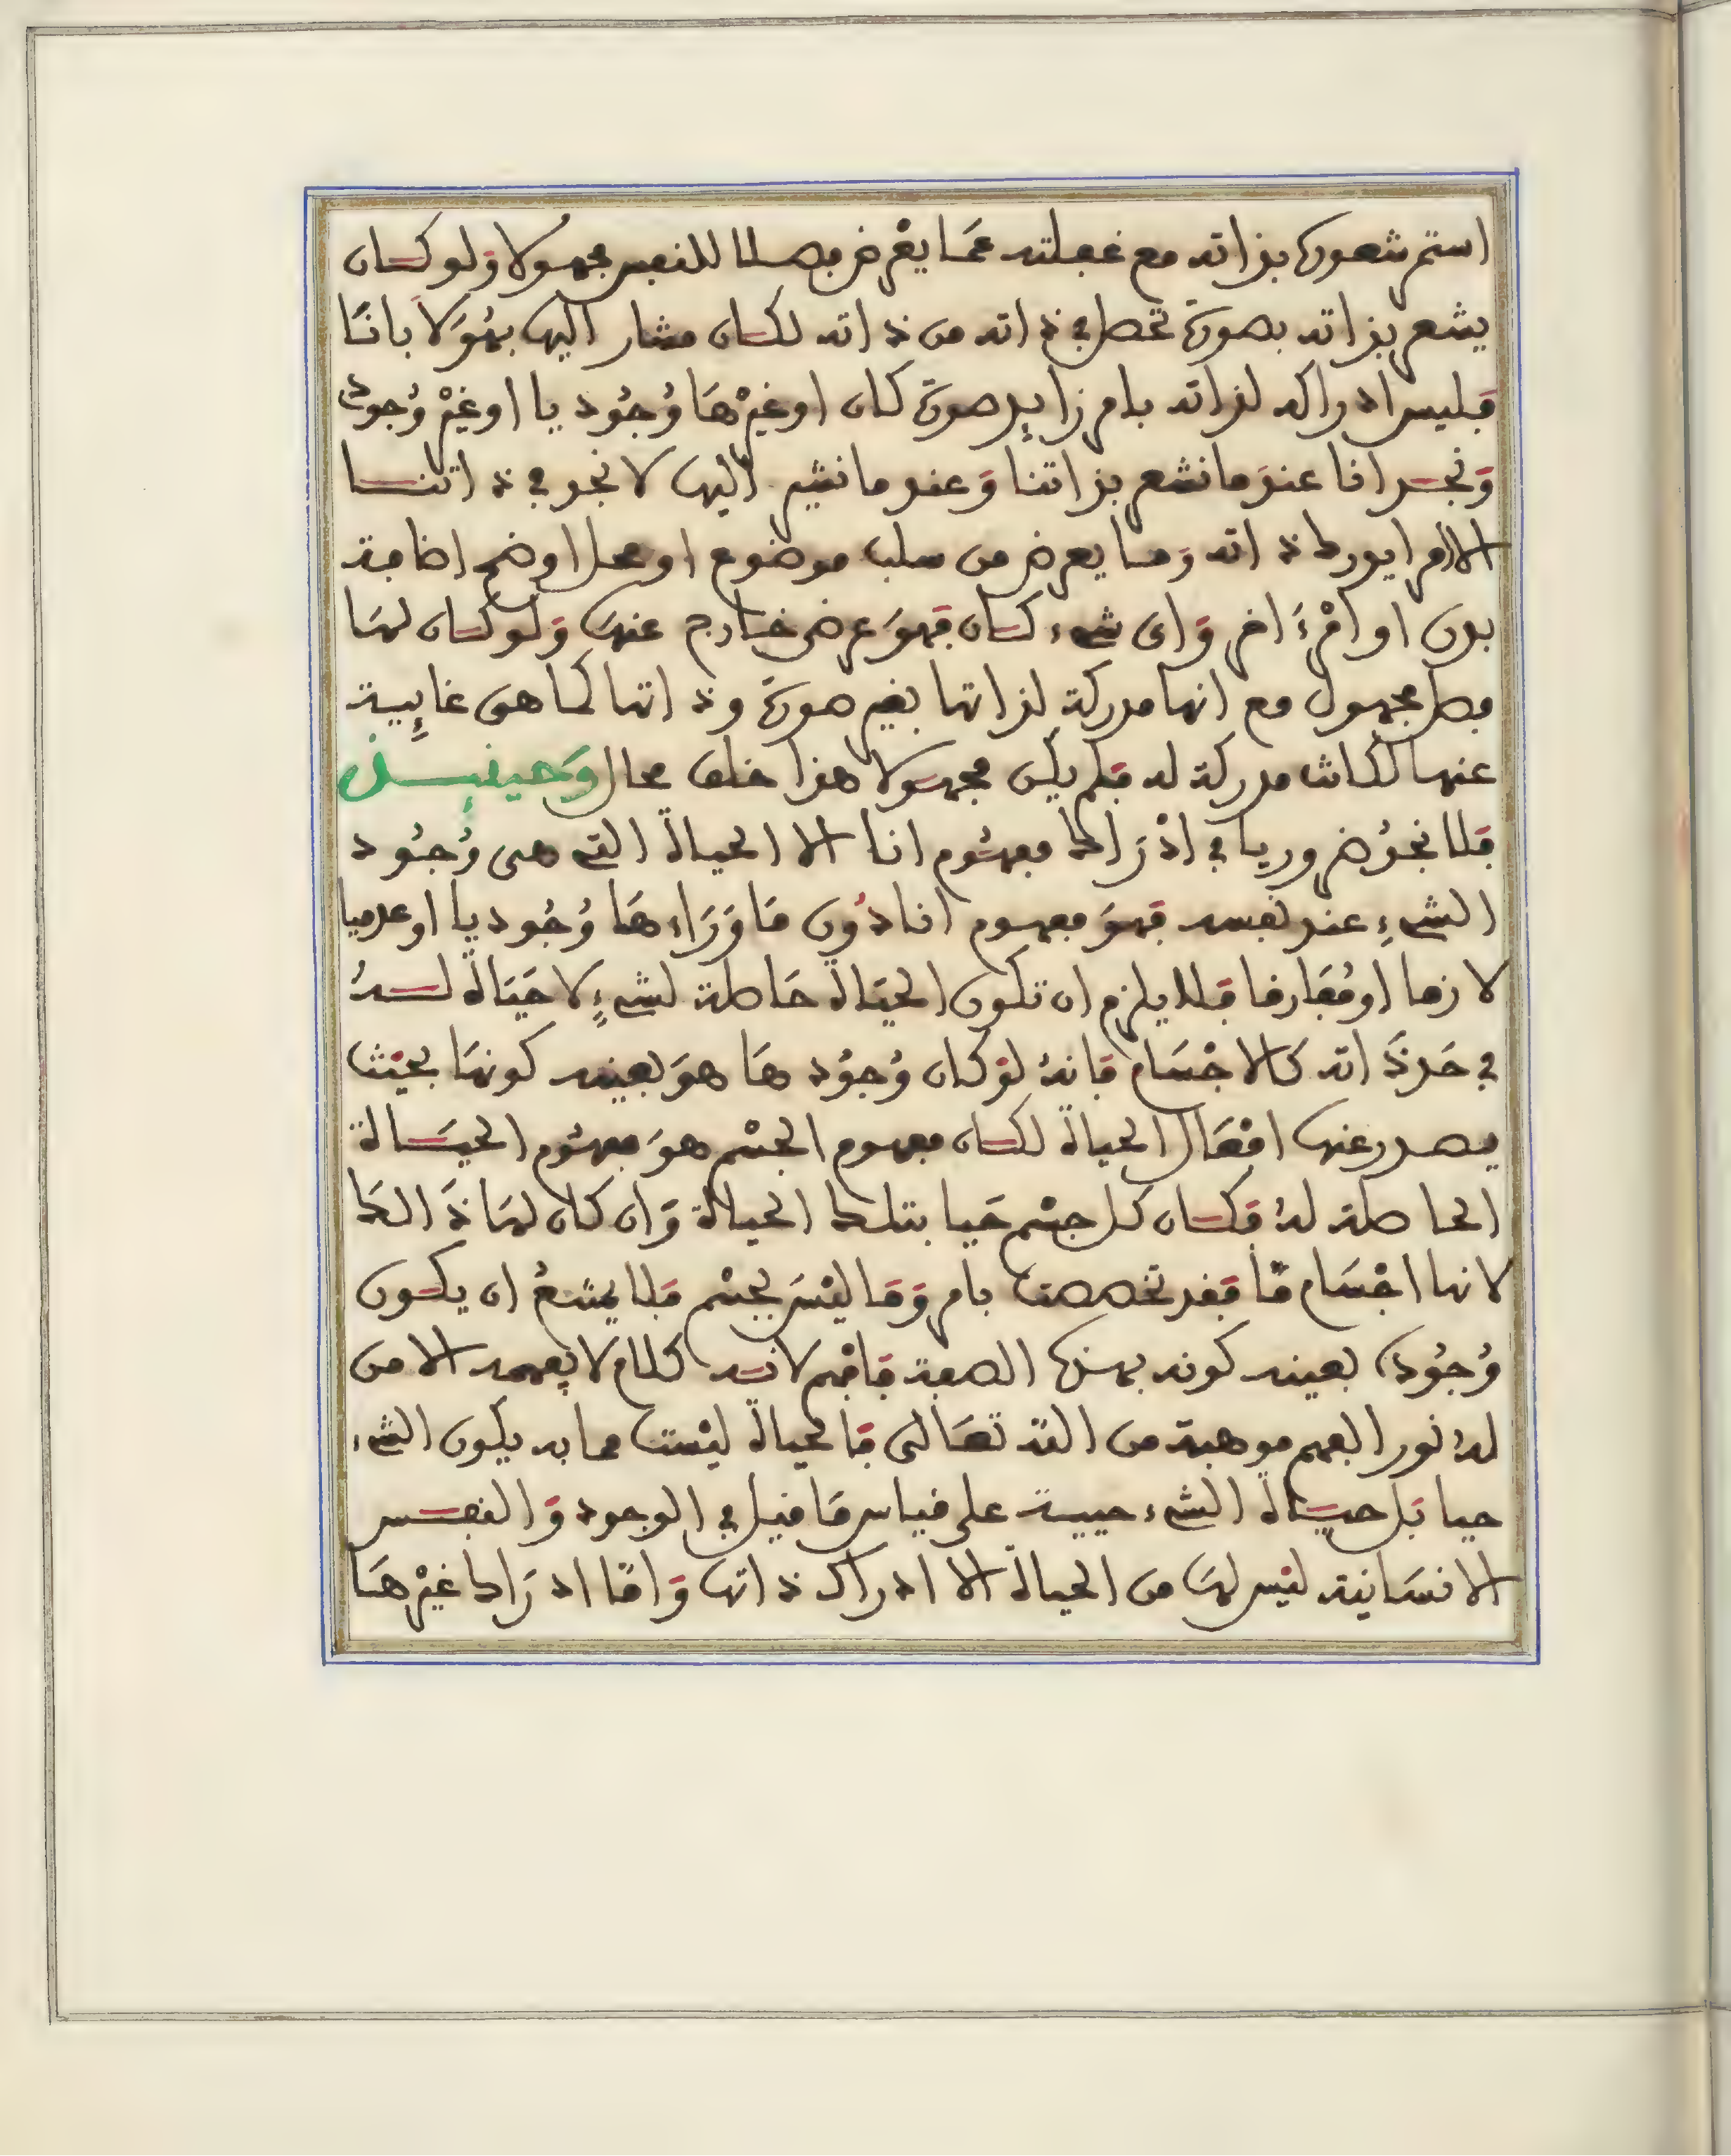 استمر شعوره بذاته مع غفلته عما يعرض فصلا للنفس مجهولا ولو كان
يشعر بذاته بصورة تحصل في ذاته من ذاته لكان مشار اليها بهو لا بانا
فليس ادراكه لذاته بامر زايد صورة كان او غيرها وجوديا او غير وجودي
ونحن انا عند ما نشعر بذاتنا وعند ما نشير اليها لا نجد في ذاتنا
الا امرا يدرك ذاته وما يعرض من سلب موضوع او محل او ضم اضافة
بدن او امر ءاخر واي شيء كان فهو عرض خارج عنها ولو كان لها
فصل مجهول مع انها مدركة لذاتها بغير صورة وذاتها كما هي غايبة
عنها لكانت مدركة له فلم يكن مجهولا هذا خلف محال وحينئذ
فلا نجد ضروريا في ادراك مفهوم انا الا الحياة التي هي وجود
الشيء عند نفسه فهو مفهوم انا دون ما وراءها وجوديا او عدميا
لازما او مفارقا فلا يلزم ان تكون الحياة حاصلة لشيء لا حياة له
في حد ذاته كالاجسام فانه لو كان وجودها هو بعينه كونها بحيث
يصدر عنها افعال الحياة لكان مفهوم الجسم هو مفهوم الحياة
الحاصلة له فكان كل جسم حيا بتلك الحياة وان كان لها ذالك
لانها اجسام ما فقد تخصصت بامر وما ليس بجسم فلا يمتنع ان يكون
وجوده بعينه كونه بهذه الصفة فافهم لانه كلام لا يفهمه الا من
له نور الفهم موهبة من الله تعالى فالحياة ليست مما به يكون الشيء
حيا بل حياة الشيء حييته على قياس ما قيل في الوجود والنفس
الانسانية ليس لها من الحياة الا ادراك ذاتها واما ادراك غيرها